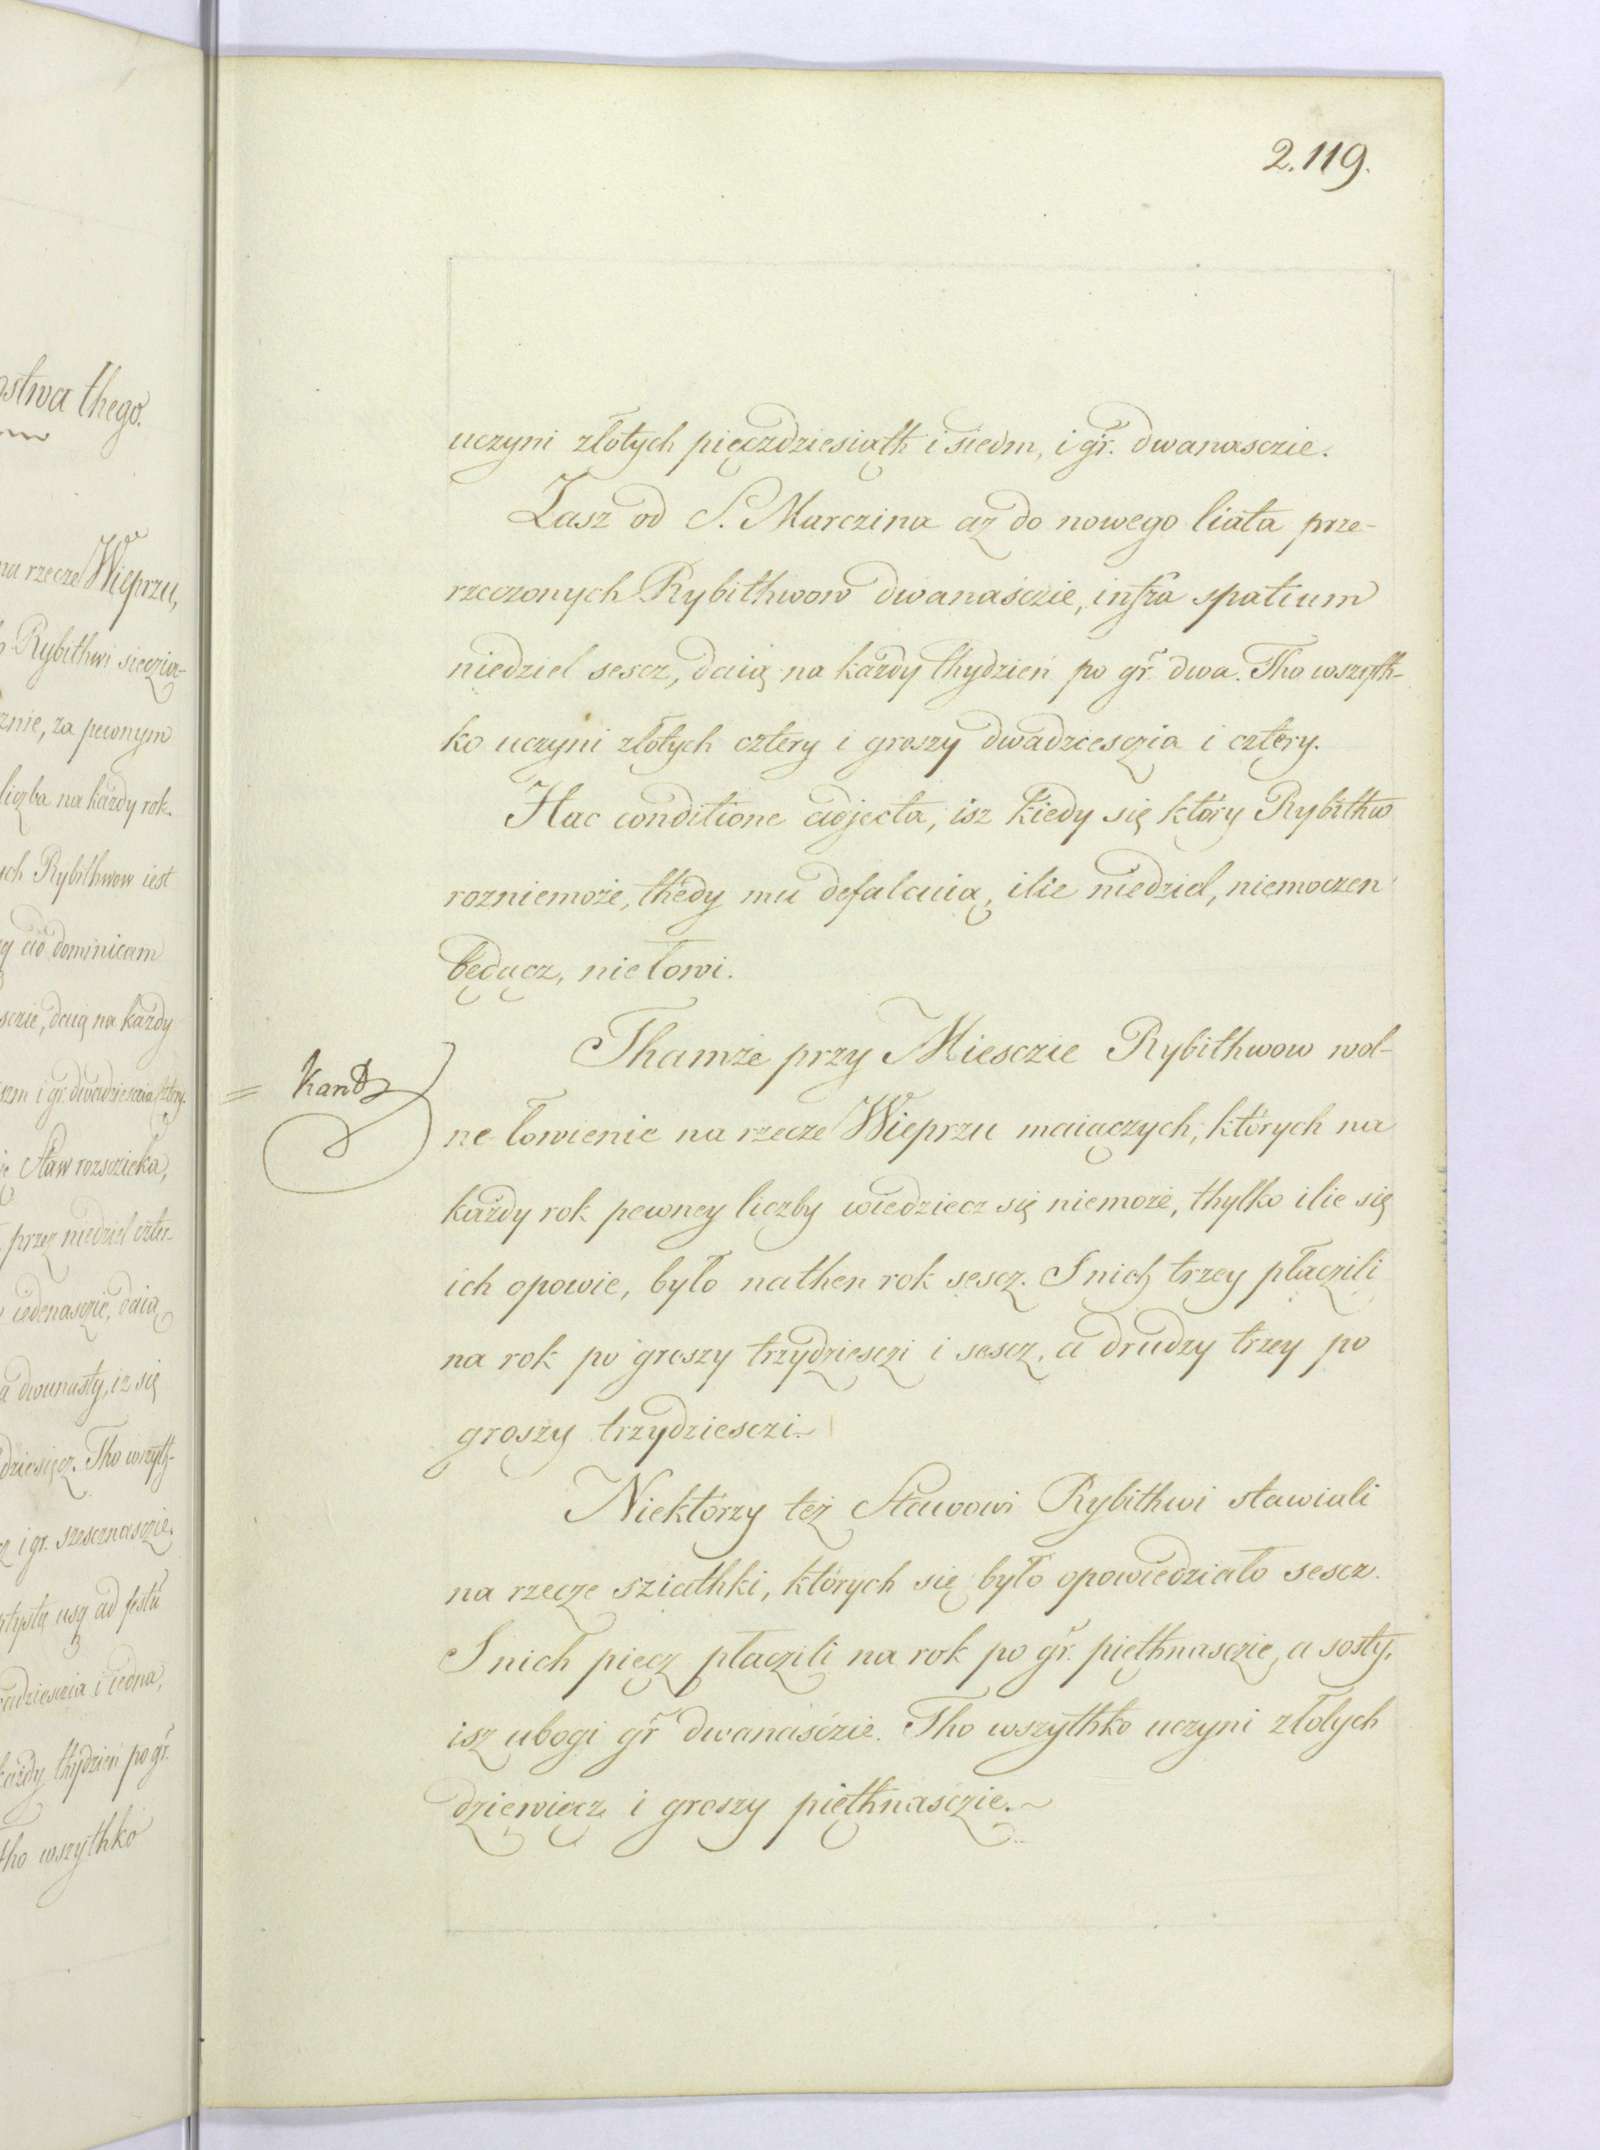 2.119.
ostwa thego.
na rzecze Wieprzu,
Rybithwi sieczia-
znie, za pewnym
liczba na każdy rok.
ych Rybithwow iest
ad dominicam
sczie, daią na każdy
szm i gr. dwadziescia cztery.
Staw rozscieka,
przez niedziel czte-
iedenasczie, daią
a dwunasty, iz się
dziesięcz. Tho wszyth-
i gr. szescznasczie.
usq ad festū
radziesczia i iedna,
każdy thydzień po gr.
Tho wszythko
uczyni złotych pięczdziesiąth i siedm, i gr. dwanasczie.
Zasz od S. Marczina aż do nowego liata prze-
rzeczonych Rybithwow dwanasczie, infra spatium
niedziel sescz, daią na każdy thydzień po gr. dwa. Tho wszyth-
ko uczyni złotych cztery i groszy dwadziesczia i cztery.
Hac conditione adjecta, isz kiedy się który Rybithw
rozniemoże, thedy mu defalcuią, ilie niedziel, niemoczen
będącz, niełowi.
Thamże przy Miesczie Rybithwow wol-
Kand
ne łowienie na rzecze Wieprzu maiączych, których na
każdy rok pewney liczby wiedziecz się niemoże, thylko ilie się
ich opowie, było nathen rok sescz. S nich trzey płaczili
na rok po groszy trzydziesczi i sescz, a drudzy trzey po
groszy trzydziesczi.
Niektórzy też Stawowi Rybithwi stawiali
na rzecze sziathki, których się było opowiedziało sescz.
S nich pięcz płaczili na rok po gr. pięthnasczie, a sosty,
isz ubogi gr dwanasczie. Tho wszythko uczyni złotych
dziewięcz i groszy pięthnasczie.